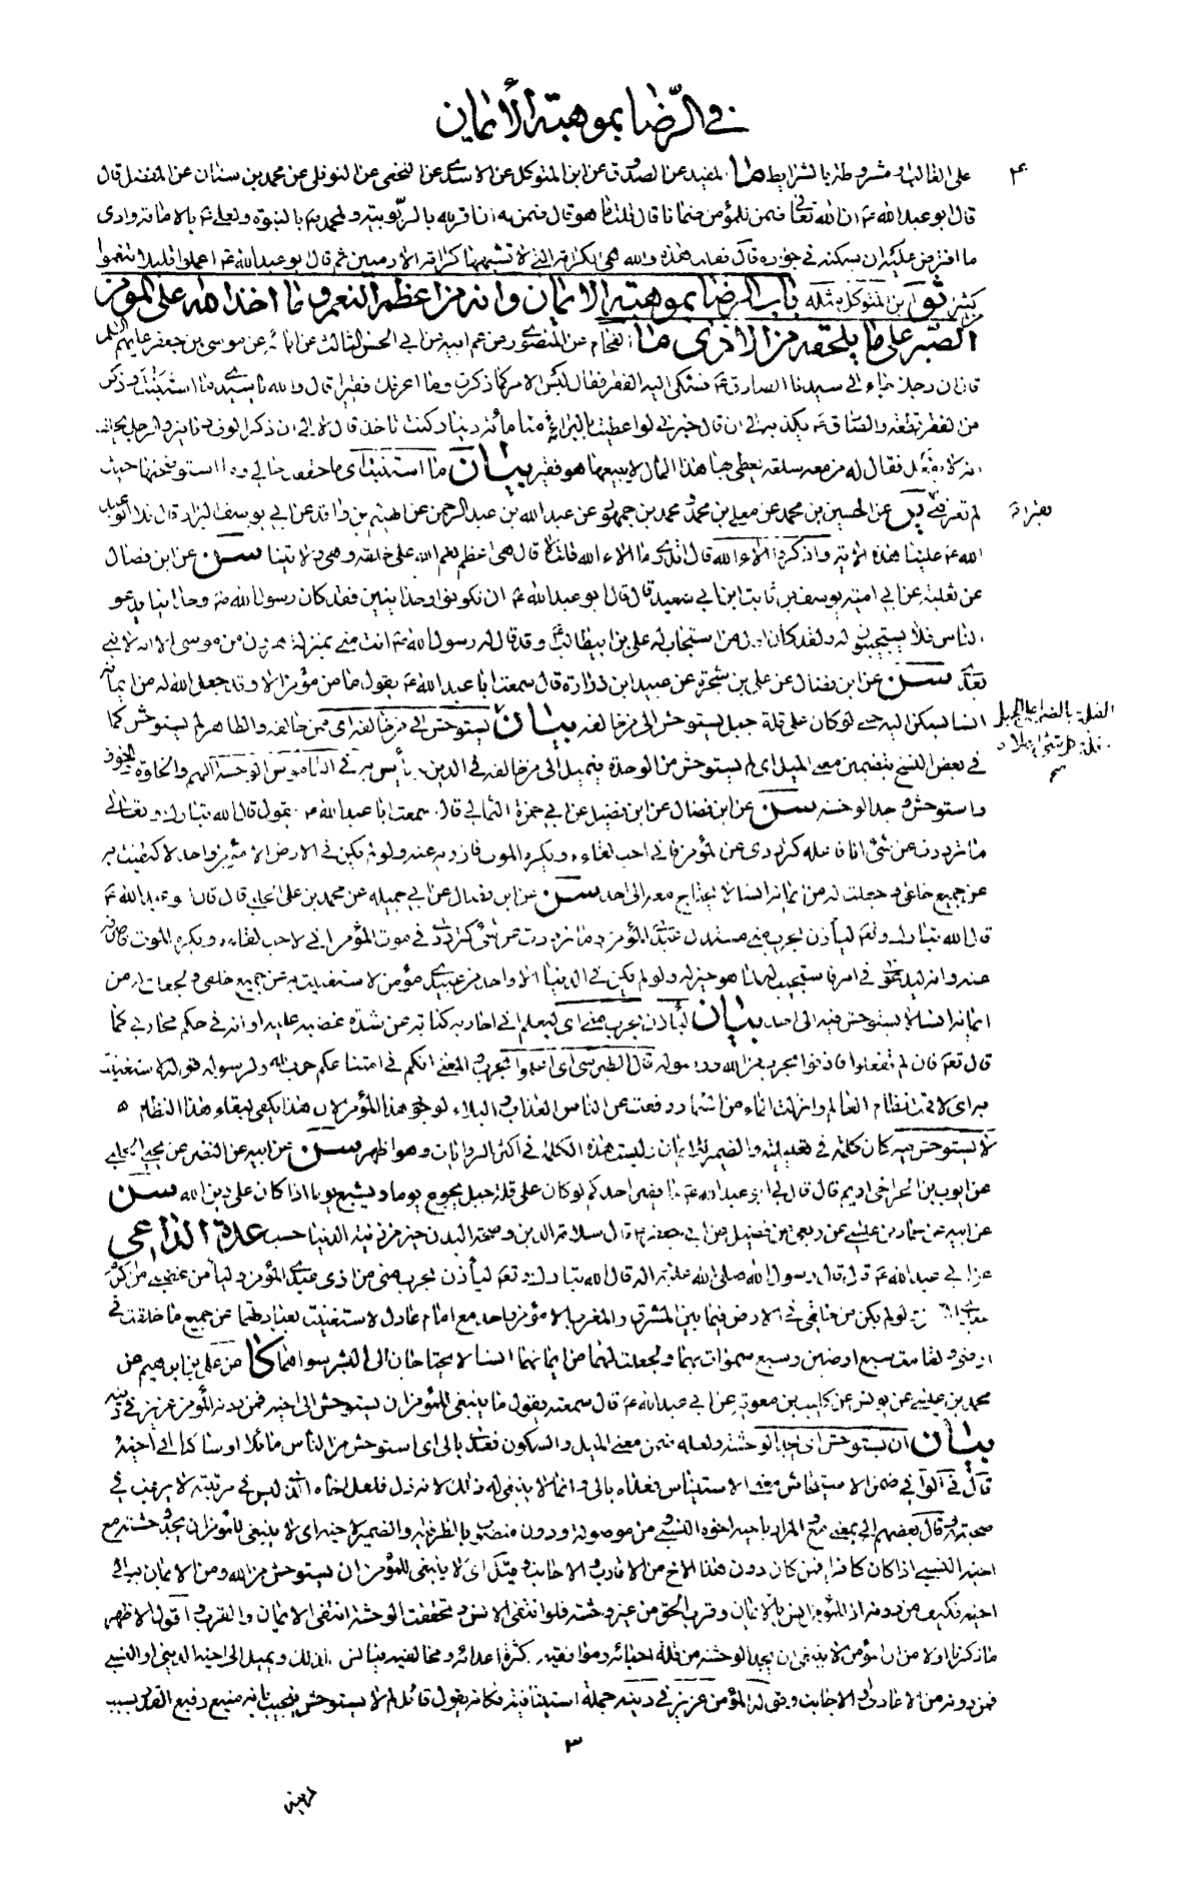 في الرّضا بموهبة الأيمان
على القالب ومشروطة بالشرايط ما المفيد عن الصدوق عن ابن المتوكل عن الاسدي عن النخعي عن النوفلي عن محمد بن سنان عن المفضل قال
قال ابو عبد الله ع ان الله تعالى ضمن للمؤمن ضمانا قال قلت ما هو قال ضمن له ان اقر لله بالربوبية ولمحمد ص بالنبوة ولعلي ع بالامامة وادى
ما افترض عليه ان يسكنه في جواره قال فقلت هذه والله هي الكرامة التي لا تشبهها كرامة الادميين ثم قال ابو عبد الله ع اعملوا قليلا تنعموا
كثيرا ثو ابن المتوكل مثله باب الرضا بموهبة الايمان وانه من اعظم النعم وما اخذ الله على المؤمن
الصبر على ما يلحقه من الاذى ما الفحام عن المنصوري عن عم ابيه عن ابي الحسن الثالث عن ابائه عن موسى بن جعفر عليهم السلم
قال ان رجلا جاء الى سيدنا الصادق ع فشكى اليه الفقر فقال ليس الامر كما ذكرت وما اعرفك فقيرا قال والله يا سيدي ما استبنت وذكر
من الفقر قطعة والصادق ع يكذبه الى ان قال خبرني لو اعطيت بالبراءة منا مائة دينار كنت تاخذ قال لا الى ان ذكر الوف دنانير والرجل يحلف
انه لا يفعل فقال له من معه سلعة يعطى بها هذا المال لا يبيعها هو فقير بيان ما استبنت اي ما حققت حالي
لم تعرفني ير عن الحسين بن محمد عن معلى بن محمد عن محمد بن جمهور عن عبد الله بن عبد الرحمن عن الهيثم بن واقد عن ابي يوسف البزاز قال تلا ابو عبد
الله ع علينا هذه الاية واذكروا الاء الله قال اتدري ما الاء الله قلت لا قال هي اعظم نعم الله على خلقه وهي ولايتنا سن عن ابن فضال
عن ثعلبة عن ابي امية يوسف بن ثابت ابن ابي سعيد قال قال ابو عبد الله ع ان تكونوا وحدانيين فقد كان رسول الله ص وحدانيا يدعو
الناس فلا يستجيبون له ولقد كان اول من استجاب له علي بن ابيطالب ع وقد قال له رسول الله ص انت مني بمنزلة هرون من موسى الا انه لا نبي
بعدي سن عن ابن فضال عن علي بن شجرة عن عبيد ابن زرارة قال سمعت ابا عبد الله ع يقول ما من مؤمن الا وقد جعل الله له من ايمانه
انسا يسكن اليه حتى لو كان على قلة جبل لم يستوحش الى من خالفه بيان يستوحش الى من خالفه اي ممن خالفه والظاهر لم يستوحش كما
في بعض النسخ بتضمين معنى الميل اي لم يستوحش من الوحدة فيميل الى من خالفه في الدين ويأنس به في القاموس الوحشة الهم والخلوة والخوف
واستوحش وجد الوحشة سن عن ابن فضال عن ابن فضيل عن ابي حمزة الثمالي قال سمعت ابا عبد الله ع يقول قال الله تبارك وتعالى
ما ترددت عن شئ انا فاعله كترددي عن المؤمن فاني احب لقاءه ويكره الموت فازويه عنه ولو لم يكن في الارض الا مؤمن واحد لاكتفيت به
عن جميع خلقي وجعلت له من ايمانه انسا لا يحتاج معه الى احد سن عن ابن فضال عن ابي جميله عن محمد بن علي الحلبي قال قال ابو عبد الله ع
قال الله تبارك وتعالى ليأذن بحرب مني مستذل عبدي المؤمن وما ترددت عن شئ كترددي في موت المؤمن اني لاحب لقاءه ويكره الموت فاصرفه
عنه وانه ليدعوني في امر فاستجيب له لما هو خير له ولو لم يكن في الدنيا الا واحد من عبيدي مؤمن لاستغنيت به عن جميع خلقي ولجعلت له من
ايمانه انسا لا يستوحش فيه الى احد بيان ليأذن بحرب مني اي ليعلم اني احاربه كناية عن شدة غضبه عليه او انه في حكم محاربي كما
قال تعالى فان لم تفعلوا فاذنوا بحرب من الله ورسوله قال الطبرسي اي اعلموا بحرب والمعنى انكم في امتناعكم حرب لله ولرسوله قوله لاستغنيت
به اي لاقمت نظام العالم وانزلت الماء من السماء ودفعت عن الناس العذاب والبلاء لوجود هذا المؤمن لان هذا يكفي لبقاء هذا النظام
لا يستوحش فيه كان كلمة في تعليلية والضمير للايمان وليست هذه الكلمة في اكثر الروايات وهو اظهر سن عن ابيه عن النضر عن يحيى الحلبي
عن ايوب بن الحر اخي اديم قال قال لي ابو عبد الله ع ما يضر احدكم لو كان على قلة جبل يجوع يوما ويشبع يوما اذا كان على دين الله سن
عن ابيه عن حماد بن عيسى عن ربعي عن فضيل عن ابي جعفر ع قال سلامة الدين وصحة البدن خير من زينة الدنيا حسب عدة الداعي
عن ابي عبد الله ع قال قال رسول الله صلى الله عليه واله قال الله تبارك وتعالى ليأذن بحرب مني من اذى عبدي المؤمن وليأمن غضبي من اكرم
عبدي المؤمن لو لم يكن من خلقي في الارض فيما بين المشرق والمغرب الا مؤمن واحد مع امام عادل لاستغنيت بعبادتهما عن جميع ما خلقت في
ارضي ولقامت سبع ارضين وسبع سموات بهما ولجعلت لهما من ايمانهما انسا لا يحتاجان الى انس سواهما كا عن علي بن ابرهيم عن
محمد بن عيسى عن يونس عن كليب بن معوية عن ابي عبد الله ع قال سمعته يقول ما ينبغي للمؤمن ان يستوحش الى اخيه فمن دونه المؤمن عزيز في دينه
بيان ان يستوحش اي يجد الوحشة ولعله ضمن معنى الميل والسكون فعدي بالى اي استوحش من الناس مائلا او ساكنا الى اخيه
قال في الوافي ضمن الاستيحاش معنى الاستيناس فعداه بالى وانما لا ينبغي له ذلك لانه ذل فلعل اخاه الذي ليس في مرتبته لا يرغب في
صحبته وقال بعضهم الى بمعنى مع والمراد باخيه اخوه النسبي ومن موصولة ودون منصوب بالظرفية والضمير لاخيه اي لا ينبغي للمؤمن ان يجد وحشة مع
اخيه النسبي اذا كان كافرا فمن كان دون هذا الاخ من الاقارب والاجانب وقيل اي لا ينبغي للمؤمن ان يستوحش من الله ومن الايمان به الى
اخيه فكيف من دونه اذ للمؤمن انس بالايمان وقرب الحق من غير وحشة فلو انتفى الانس وتحققت الوحشة انتفى الايمان والقرب اقول الاظهر
ما ذكرنا اولا من ان المؤمن لا ينبغي ان يجد الوحشة من قلة احبائه وموافقيه وكثرة اعدائه ومخالفيه فيانس لذلك ويميل الى اخيه الديني او النسبي
فمن دونه من الاعادي والاجانب وقوله المؤمن عزيز في دينه جملة استينافية فكانه يقول قائل لم لا يستوحش فيجيب بانه منيع رفيع القدر بسبب
٣